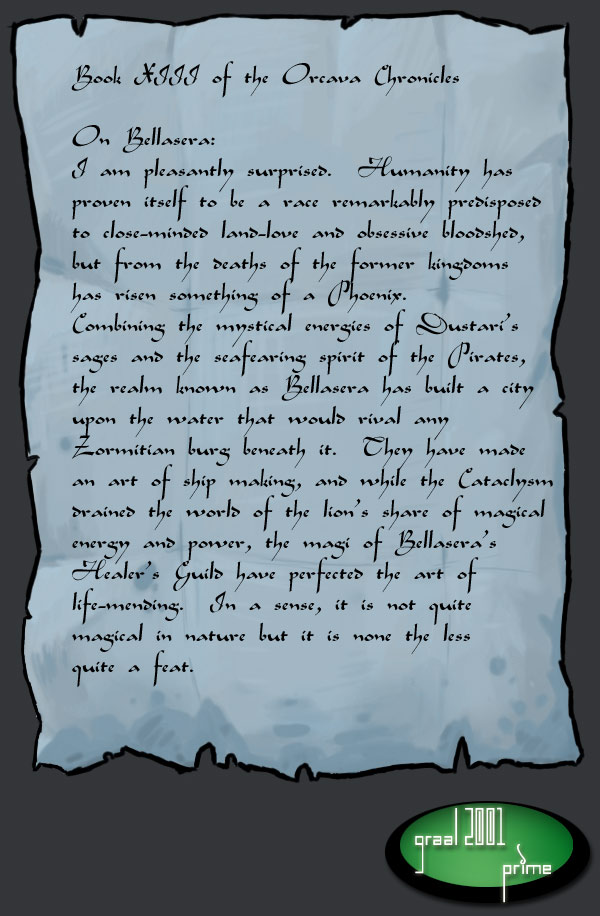 Book XIII of the Orcava Chronicles
On Bellasera:
I am pleasantly surprised. Humanity has
proven itself to be a race remarkably predisposed
to close-minded land-love and obsessive bloodshed,
but from the deaths of the former kingdoms
has risen something of a Phoenix.
Combining the mystical energies of Dustari's
sages and the seafearing spirit of the Pirates,
the realm known as Bellasera has built a city
upon the water that would rival any
Zormitian burg beneath it. They have made
an art of ship making, and while the Cataclysm
drained the world of the lion's share of magical
energy and power, the magi of Bellasera's
Healer's Guild have perfected the art of
life-mending. In a sense, it is not quite
magical in nature but it is none the less
quite a feat.
graal 2001
prime